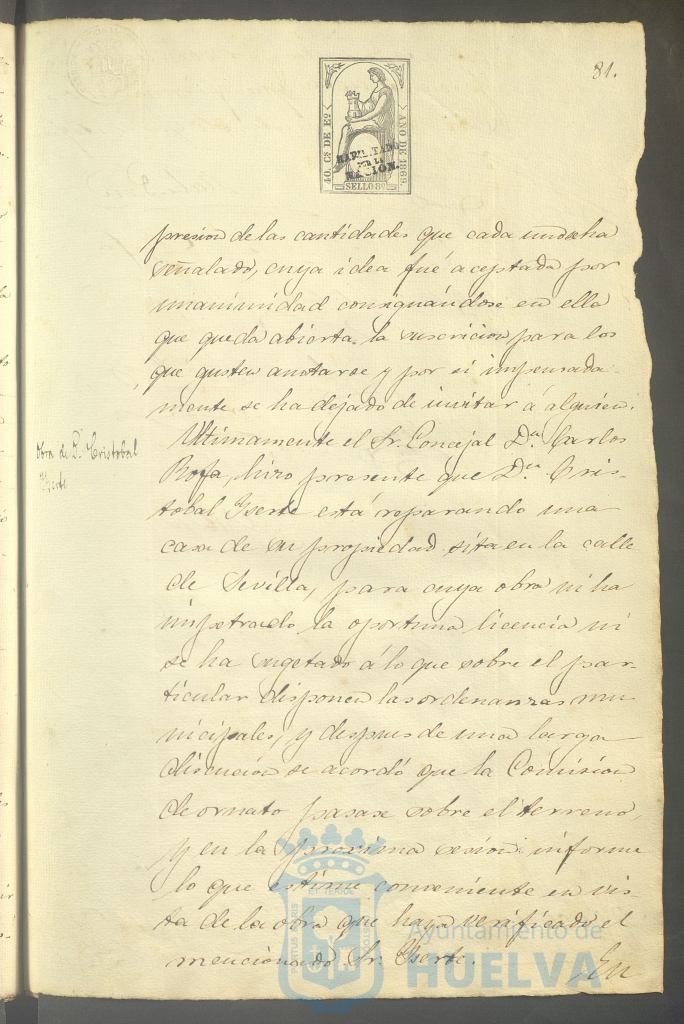 81.
40. Cs DE Eº
AÑO DE 1869.
HABILITADO
POR LA
NACION.
SELLO 8º
presion de las cantidades que cada uno ha
señalado, cuya idea fué aceptada por
unanimidad consignándose en ella
que queda abierta la suscricion para los
que gusten anotarse y por si impensada-
mente se ha dejado de invitar á alguien.
Obra de D. Cristobal
Yserte
Ultimamente el Sr. Concejal Dn. Carlos
Rofa, hizo presente que Dn. Cris-
tobal Yserte está reparando una
casa de su propiedad sita en la calle
de Sevilla, para cuya obra ni ha
impetrado la oportuna licencia ni
se ha sugetado á lo que sobre el par-
ticular disponen las ordenanzas mu
nicipales, y despues de una larga
discusion se acordó que la Comision
de ornato pasase sobre el terreno,
y en la proxima sesion informe
lo que estime conveniente en vis-
ta de la obra que haya verificado el
mencionado Sr. Yserte.
En
Ayuntamiento de
HUELVA